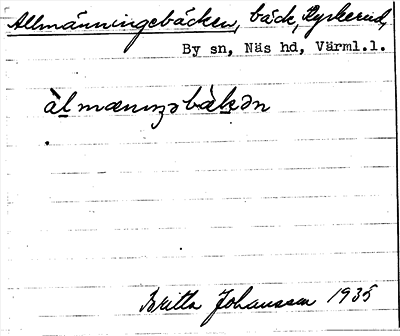 Allmänningebäcken, bäck, Kyrkerud,
By sn, Näs hd, Värml.l.
àlmænıŋəbäkən
Britta Johansson 1935